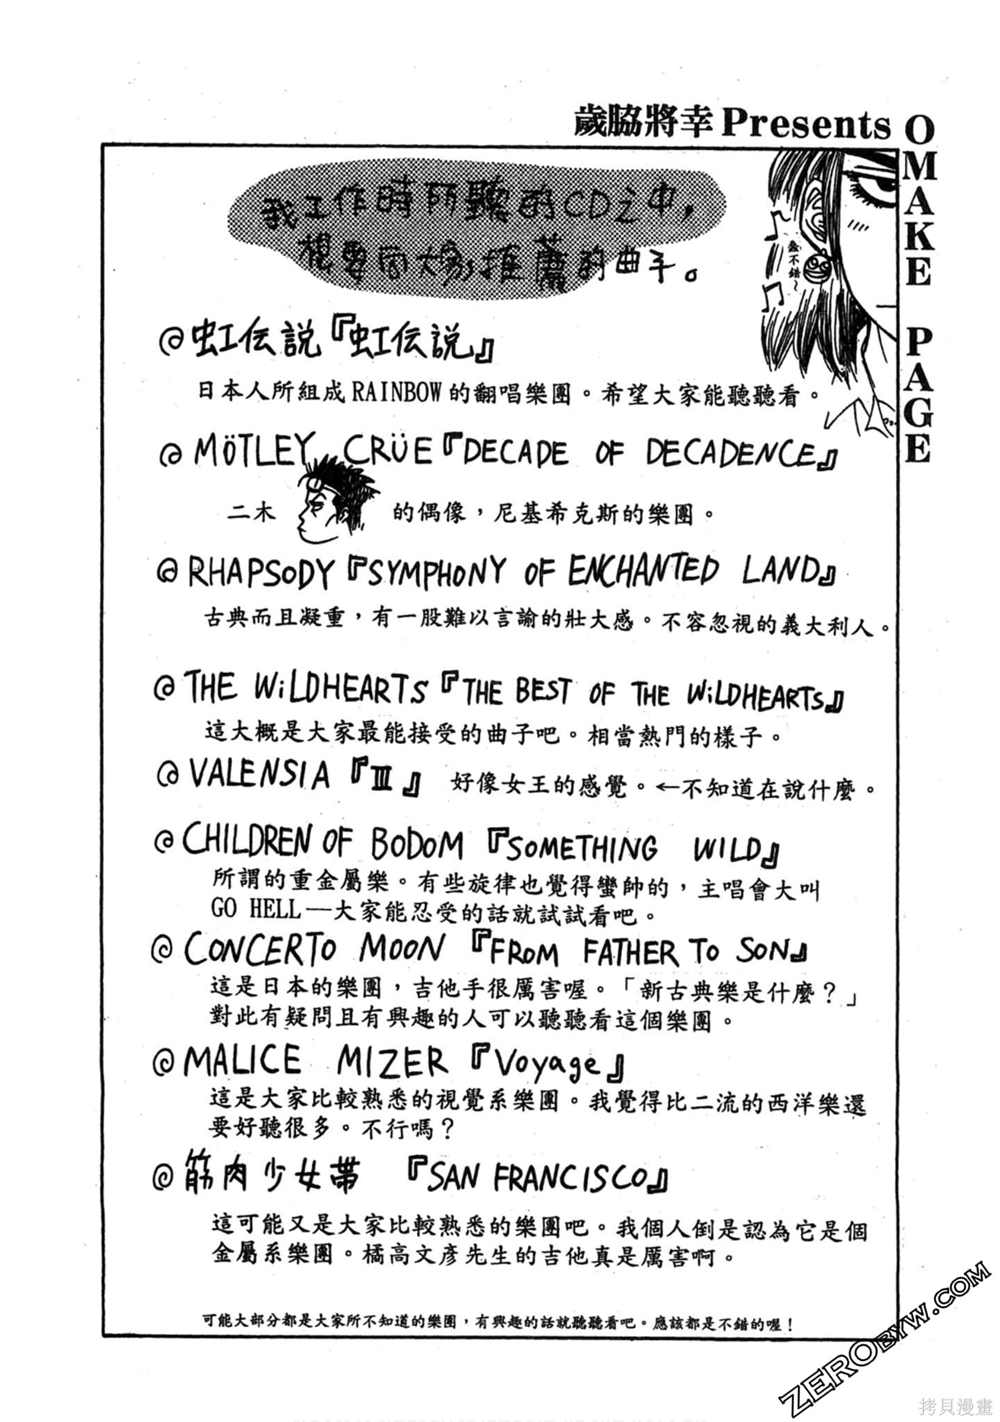 歲脇將幸Presents
OMAKE PAGE
我工作時所聽的CD之中,
想要向大家推薦的曲子。
蠻不錯~
@虹伝説『虹伝説』
日本人所組成RAINBOW的翻唱樂團。希望大家能聽聽看。
@MÖTLEY CRÜE『DECADE OF DECADENCE』
二木 的偶像,尼基希克斯的樂團。
@RHAPSODY『SYMPHONY OF ENCHANTED LAND』
古典而且凝重,有一股難以言諭的壯大感。不容忽視的義大利人。
@THE WiLDHEARTS『THE BEST OF THE WiLDHEARTS』
這大概是大家最能接受的曲子吧。相當熱門的樣子。
@VALENSIA『Ⅲ』 好像女王的感覺。←不知道在說什麼。
@CHILDREN OF BODOM『SOMETHING WILD』
所謂的重金屬樂。有些旋律也覺得蠻帥的,主唱會大叫
GO HELL—大家能忍受的話就試試看吧。
@CONCERTO MOON『FROM FATHER TO SON』
這是日本的樂團,吉他手很厲害喔。「新古典樂是什麼?」
對此有疑問且有興趣的人可以聽聽看這個樂團。
@MALICE MIZER『Voyage』
這是大家比較熟悉的視覺系樂團。我覺得比二流的西洋樂還
要好聽很多。不行嗎?
@筋肉少女帯 『SAN FRANCISCO』
這可能又是大家比較熟悉的樂團吧。我個人倒是認為它是個
金屬系樂團。橘高文彥先生的吉他真是厲害啊。
可能大部分都是大家所不知道的樂團,有興趣的話就聽聽看吧。應該都是不錯的喔!
ZEROBYW.COM
拷貝漫畫